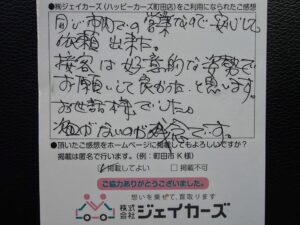 ●㈱ジェイカーズ(ハッピーカーズ町田店)をご利用になられたご感想
同じ市内での営業なので安心して
依頼出来た。
接客は好意的な姿勢で
お願いして良かったと思います。
お世話様でした。
が ないのが残念です。
●頂いたご感想をホームページに掲載してもよろしいですか？
掲載は匿名で行います。(例：町田市K様)
掲載してよい □掲載不可
ご協力ありがとうございました。
想いを乗せて、買取ります
株式会社ジェイカーズ